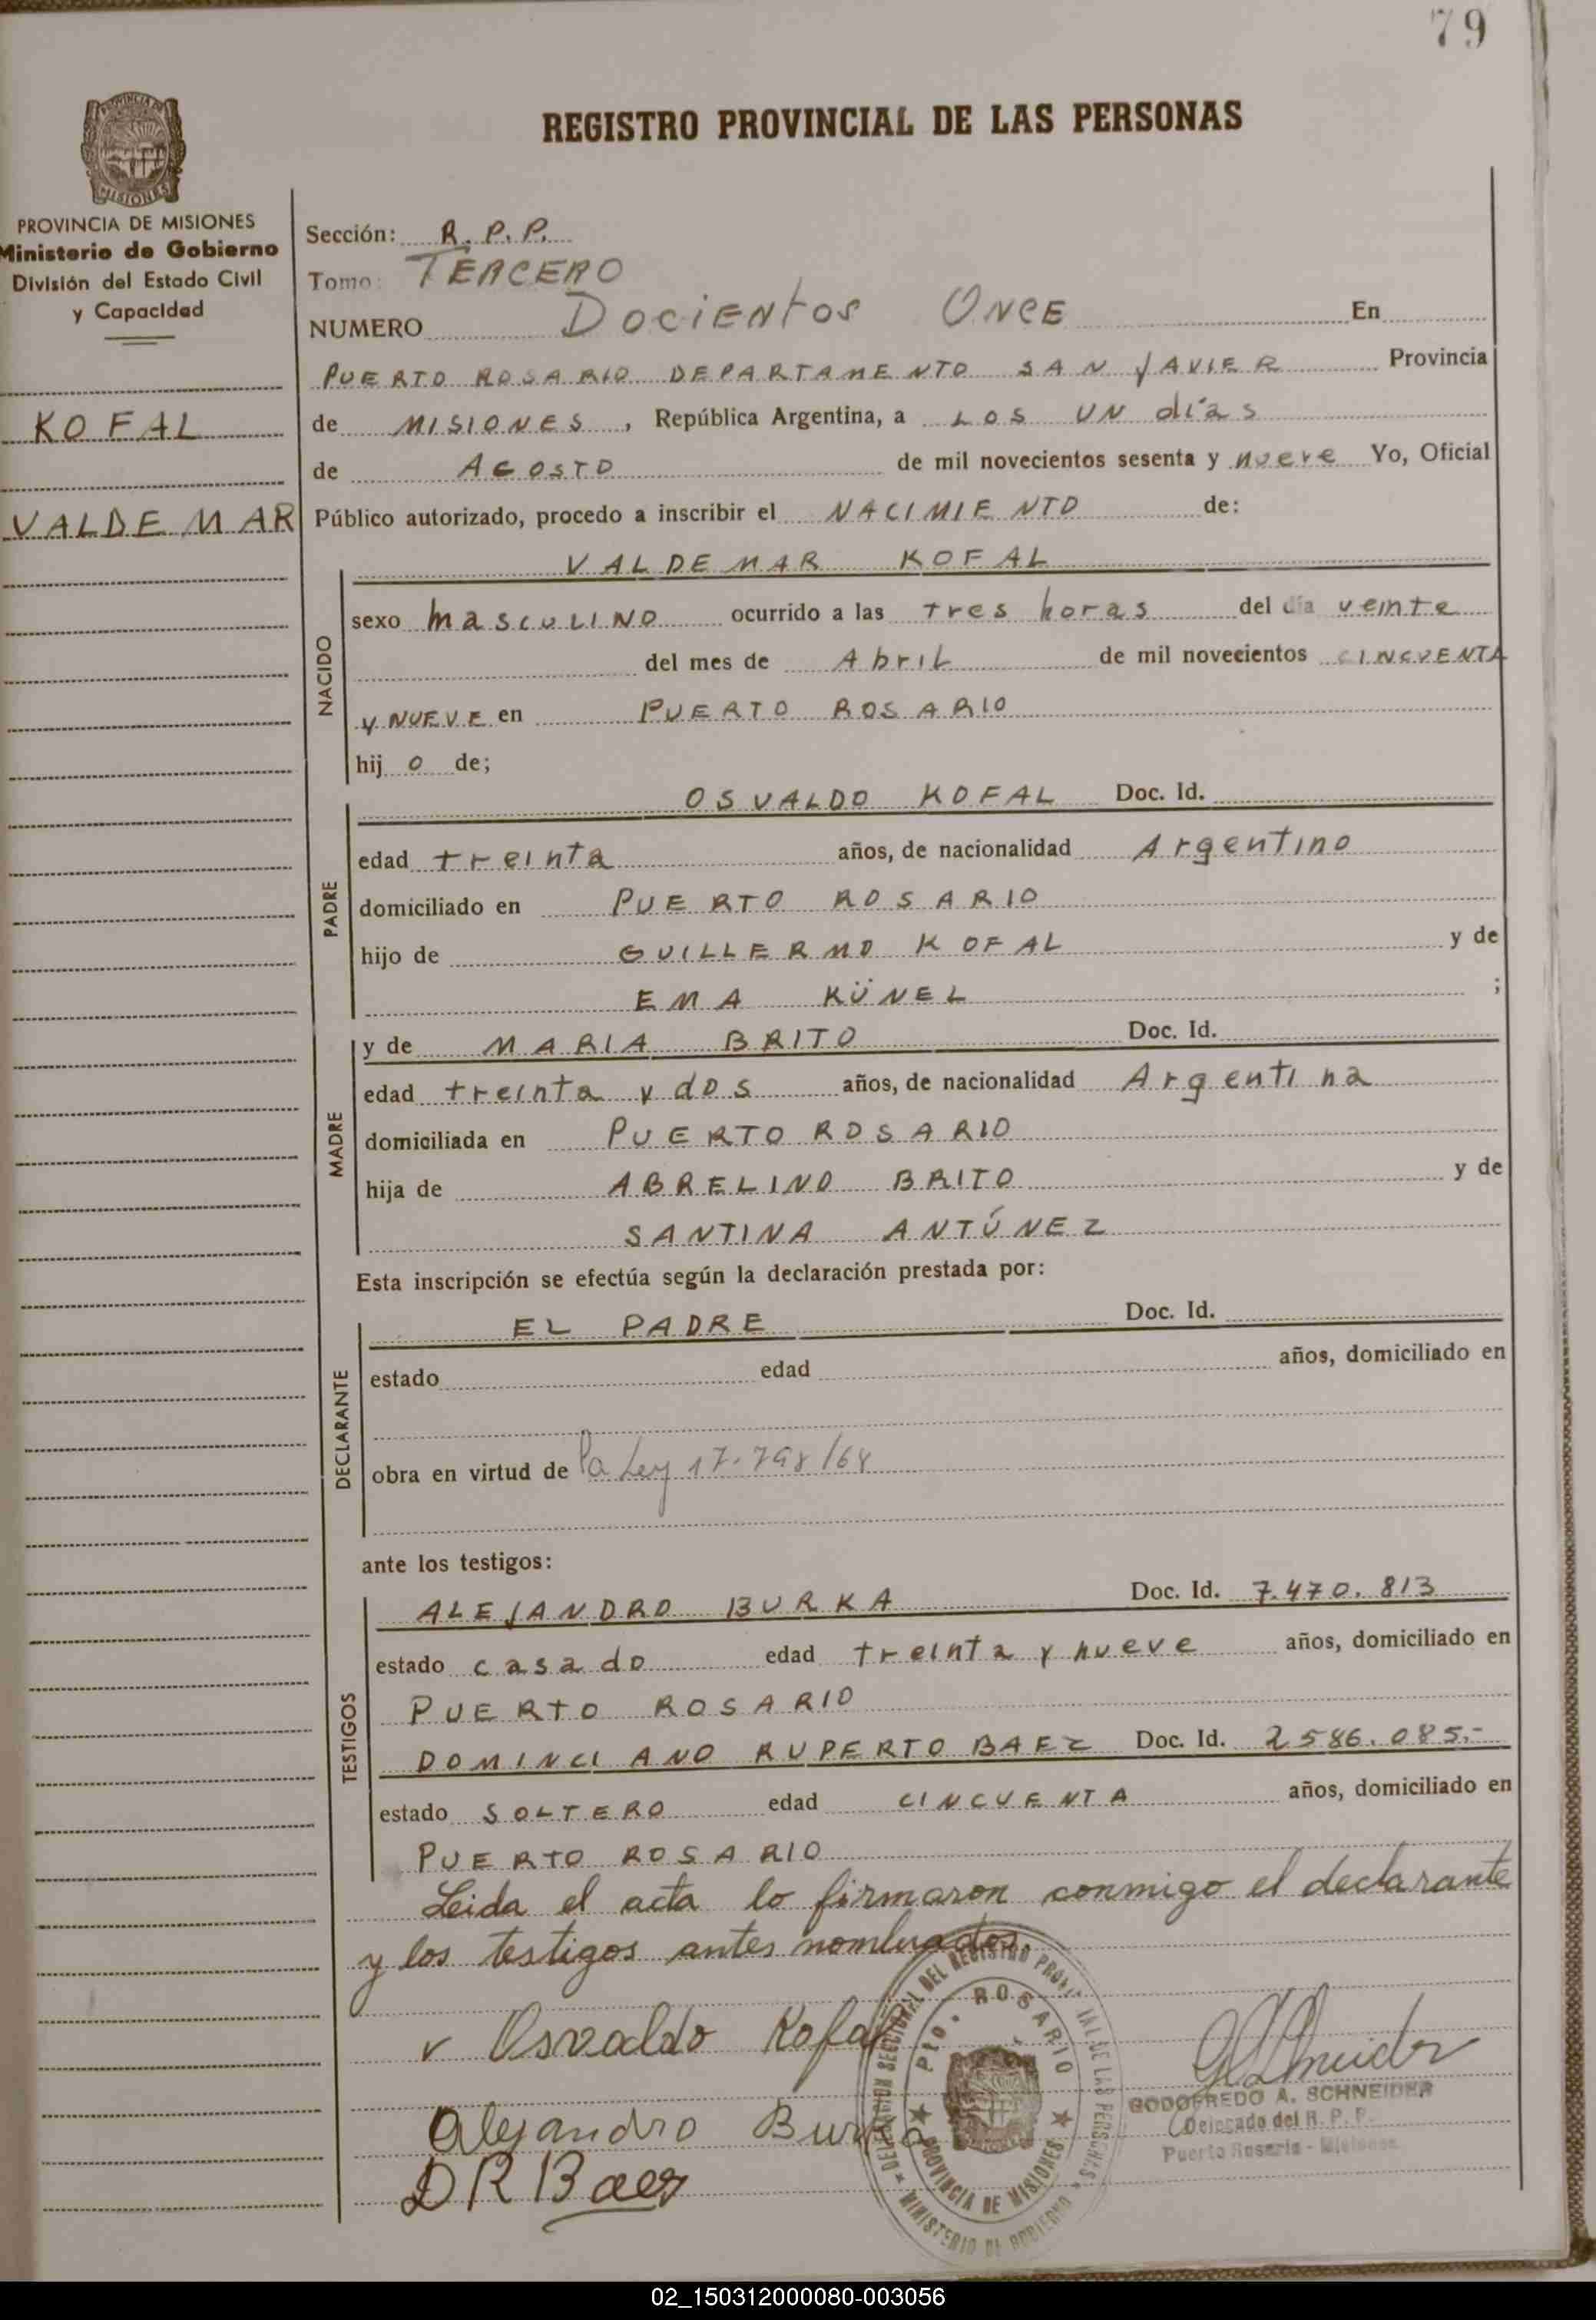 79
REGISTRO PROVINCIAL DE LAS PERSONAS
PROVINCIA DE MISIONES
Ministerio de Gobierno
División del Estado Civil
y Capacidad
KOFAL
VALDEMAR
Sección: R. P. P.
Tomo: TERCERO
NUMERO DOCIENTOS ONCE En
PUERTO ROSARIO DEPARTAMENTO SAN JAVIER Provincia
de MISIONES, República Argentina, a LOS UN días
de AGOSTO de mil novecientos sesenta y nueve Yo, Oficial
Público autorizado, procedo a inscribir el NACIMIENTO de:
NACIDO
VALDEMAR KOFAL
sexo masculINO ocurrido a las tres horas del día veinte
del mes de AbriL de mil novecientos CINCUENTA
y NUEVE en PUERTO ROSARIO
hij o de;
PADRE
OSVALDO KOFAL Doc. Id.
edad treinta años, de nacionalidad Argentino
domiciliado en PUERTO ROSARIO
hijo de GUILLERMO KOFAL y de
EMA KÜNEL ;
MADRE
y de MARIA BRITO Doc. Id.
edad treinta y dos años, de nacionalidad Argentina
domiciliada en PUERTO ROSARIO
hija de ABRELINO BRITO y de
SANTINA ANTÚNEZ
Esta inscripción se efectúa según la declaración prestada por:
DECLARANTE
EL PADRE Doc. Id.
estado edad años, domiciliado en
obra en virtud de la Ley 17.798/68
ante los testigos:
TESTIGOS
ALEJANDRO BURKA Doc. Id. 7.470.813
estado casado edad treinta y nueve años, domiciliado en
PUERTO ROSARIO
DOMINCIANO RUPERTO BAEZ Doc. Id. 2586.085.-
estado SOLTERO edad CINCUENTA años, domiciliado en
PUERTO ROSARIO
Leida el acta lo firmaron conmigo el declarante
y los testigos antes nombrados.
Osvaldo Kofal
Alejandro Burka
D R Baez
DELEGACION SECCIONAL DEL REGISTRO PROVINCIAL DE LAS PERSONAS
PTO. ROSARIO
PROVINCIA DE MISIONES
MINISTERIO DE GOBIERNO
GODOFREDO A. SCHNEIDER
Delegado del R. P. P.
Puerto Rosario - Misiones
02_150312000080-003056